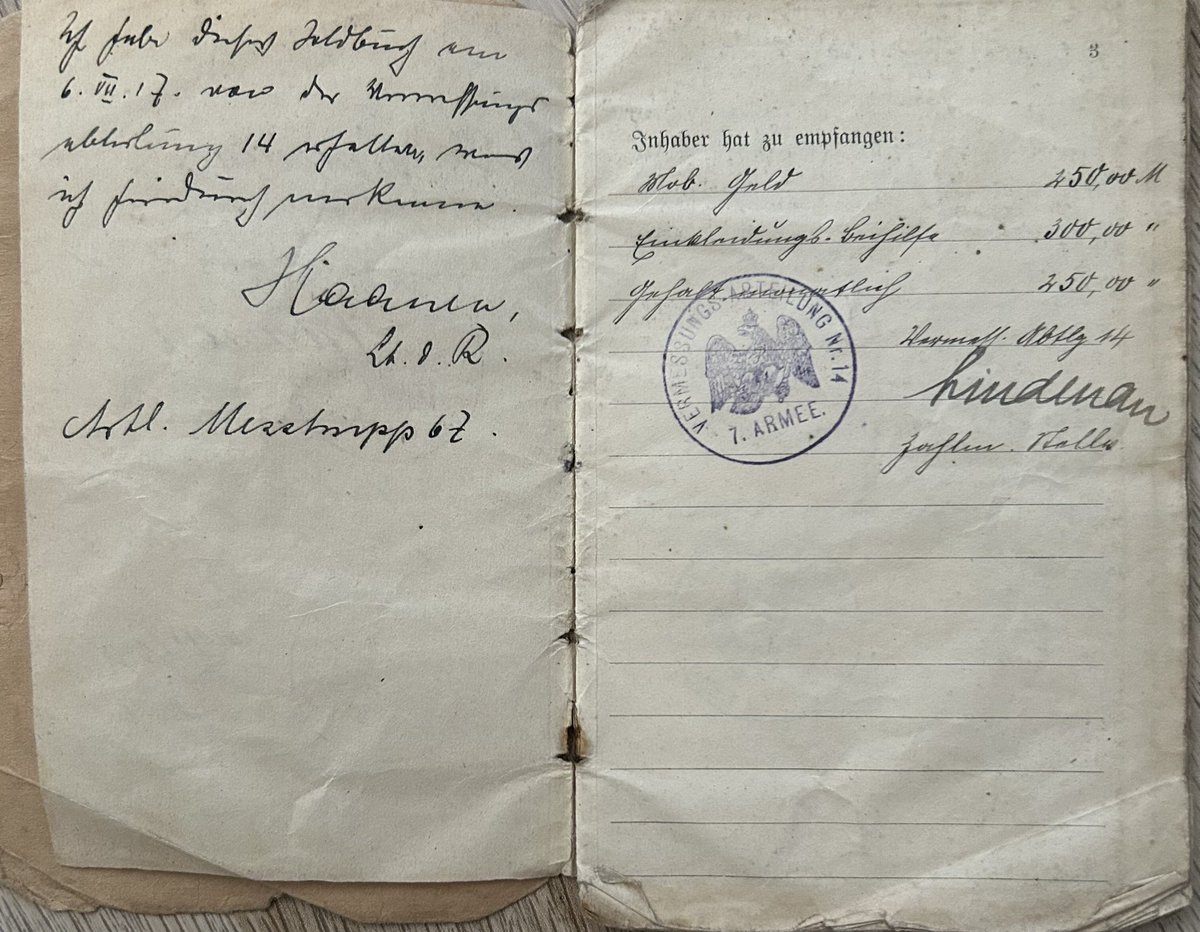 Ich habe dieses Soldbuch am
6. VII. 17. von der Vermessungs
abteilung 14 erhalten, was
ich hierdurch anerkenne.
Haanen,
Lt. d. R.
Artl. Messtrupp 67.
3
Inhaber hat zu empfangen:
Mob. Geld 250,00 M
Einkleidungs-Beihilfe 300,00 "
Gehalt monatlich 250,00 "
VERMESSUNGS-ABTEILUNG Nr. 14
7. ARMEE.
Vermess. Abtlg 14
Lindenau
Zahlm. Stellv.